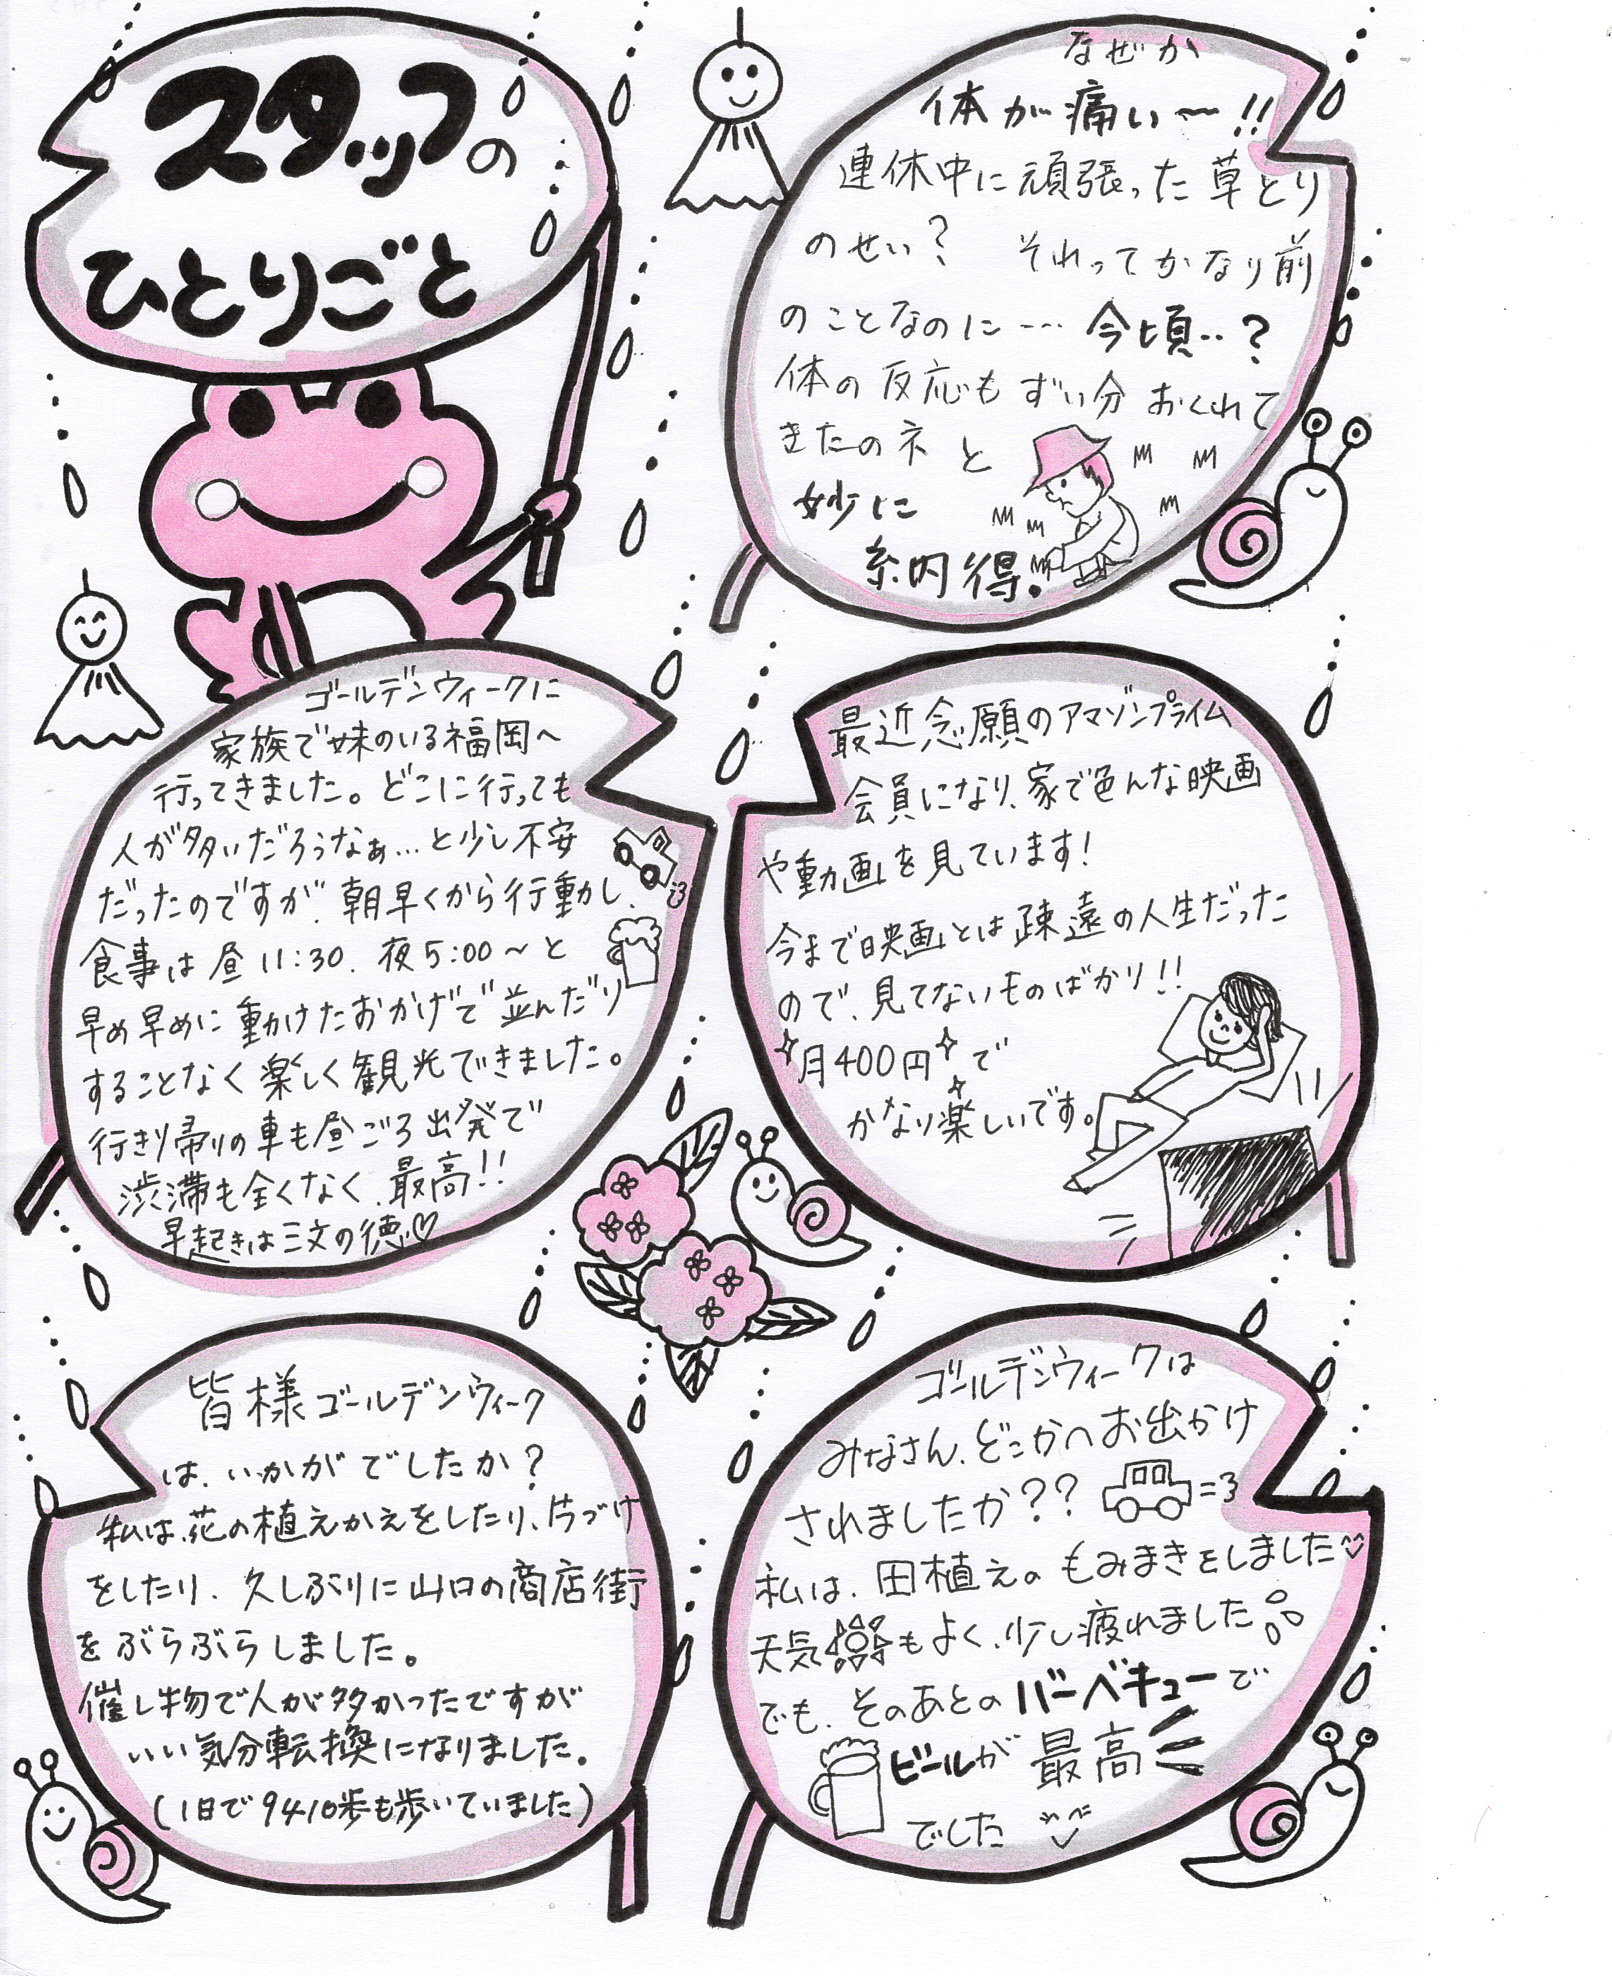 スタッフの
ひとりごと
なぜか
体が痛い〜!!
連休中に頑張った草とり
のせい? それってかなり前
のことなのに… 今頃‥?
体の反応もずい分おくれて
きたのネと
妙に
納得。
ゴールデンウィークに
家族で妹のいる福岡へ
行ってきました。どこに行っても
人が多いだろうなぁ…と少し不安
だったのですが、朝早くから行動し、
食事は昼11:30、夜5:00〜と
早め早めに動けたおかげで並んだり
することなく楽しく観光できました。
行き帰りの車も昼ごろ出発で
渋滞も全くなく、最高!!
早起きは三文の徳♡
最近念願のアマゾンプライム
会員になり、家で色んな映画
や動画を見ています!
今まで映画とは疎遠の人生だった
ので、見てないものばかり!!
月400円で
かなり楽しいです。
皆様ゴールデンウィーク
は、いかがでしたか?
私は、花の植えかえをしたり、片づけ
をしたり、久しぶりに山口の商店街
をぶらぶらしました。
催し物で人が多かったですが
いい気分転換になりました。
(1日で9410歩も歩いていました)
ゴールデンウィークは
みなさん、どこかへお出かけ
されましたか??
私は、田植えのもみまきをしました
天気もよく、少し疲れました
でも、そのあとのバーベキューで
ビールが最高
でした